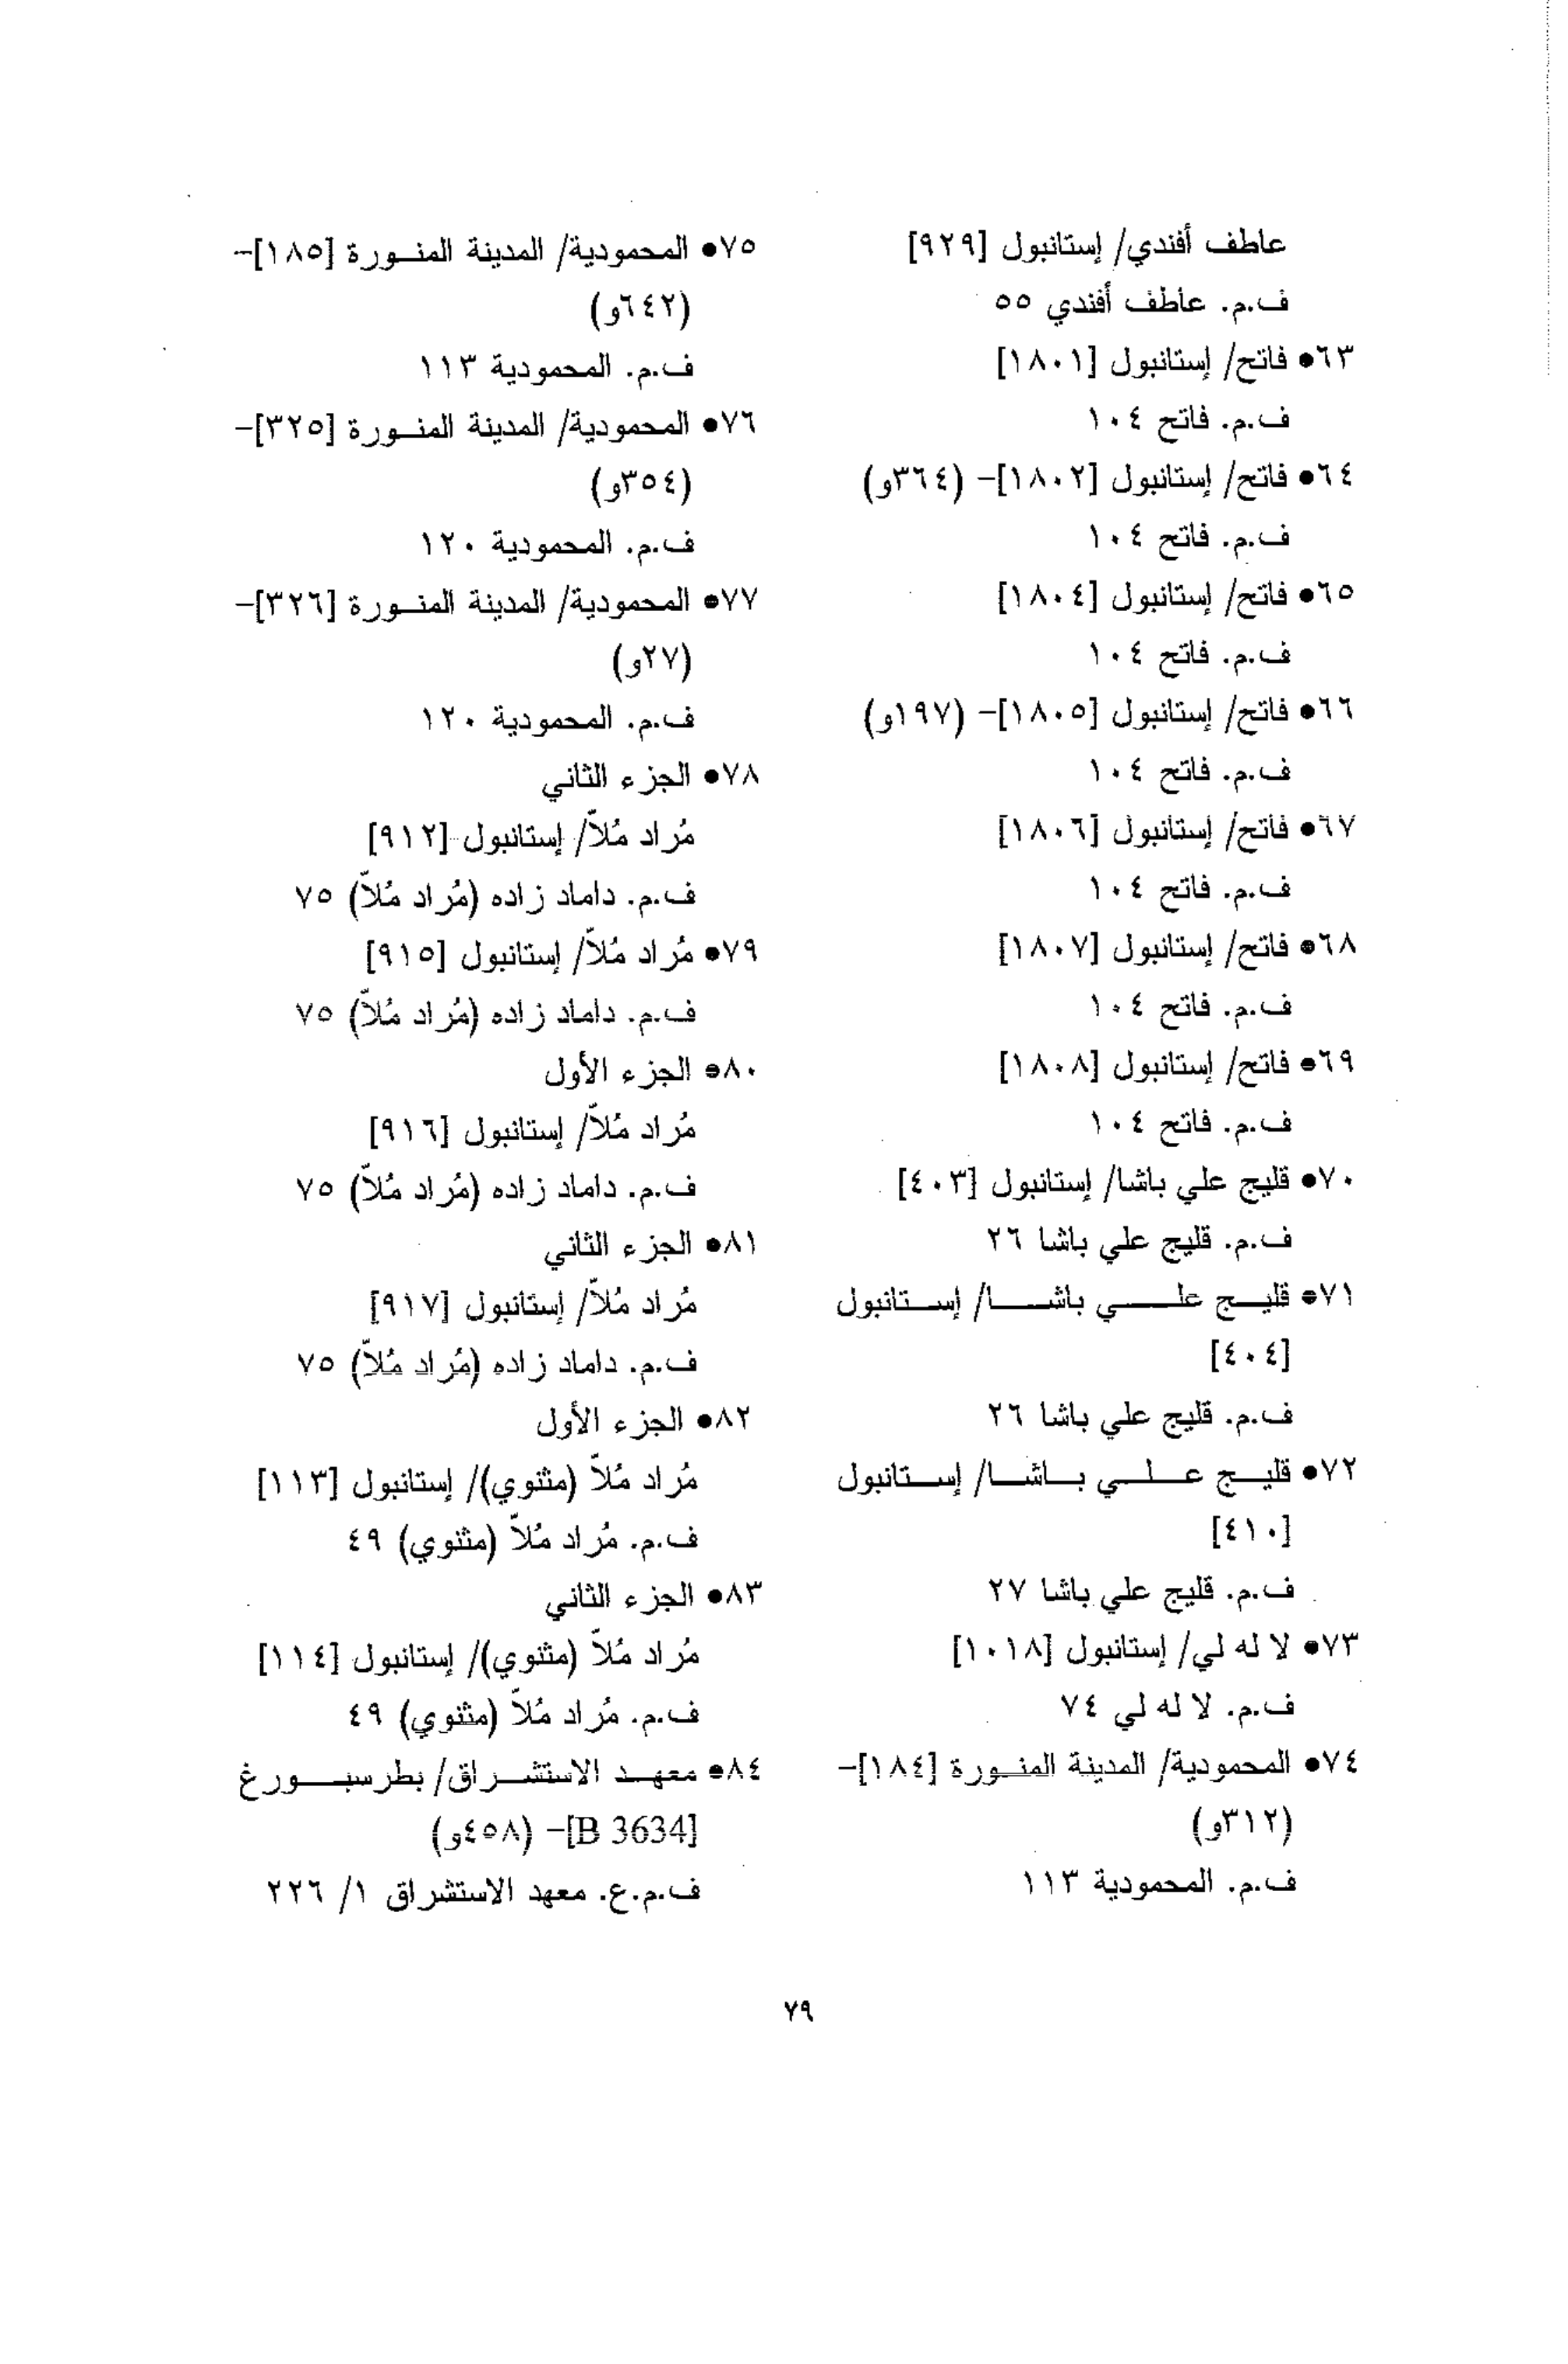 عاطف أفندي/ إستانبول [٩٢٩]
ف.م. عاطف أفندي ٥٥
٦٣• فاتح/ إستانبول [١٨٠١]
ف.م. فاتح ١٠٤
٦٤• فاتح/ إستانبول [١٨٠٢]- (٣٦٤و)
ف.م. فاتح ١٠٤
٦٥• فاتح/ إستانبول [١٨٠٤]
ف.م. فاتح ١٠٤
٦٦• فاتح/ إستانبول [١٨٠٥]- (١٩٧و)
ف.م. فاتح ١٠٤
٦٧• فاتح/ إستانبول [١٨٠٦]
ف.م. فاتح ١٠٤
٦٨• فاتح/ إستانبول [١٨٠٧]
ف.م. فاتح ١٠٤
٦٩• فاتح/ إستانبول [١٨٠٨]
ف.م. فاتح ١٠٤
٧٠• قليج علي باشا/ إستانبول [٤٠٣]
ف.م. قليج علي باشا ٢٦
٧١• قليج علي باشا/ إستانبول
[٤٠٤]
ف.م. قليج علي باشا ٢٦
٧٢• قليج علي باشا/ إستانبول
[٤١٠]
ف.م. قليج علي باشا ٢٧
٧٣• لا له لي/ إستانبول [١٠١٨]
ف.م. لا له لي ٧٤
٧٤• المحمودية/ المدينة المنورة [١٨٤]-
(٣١٢و)
ف.م. المحمودية ١١٣
٧٥• المحمودية/ المدينة المنورة [١٨٥]-
(٦٤٢و)
ف.م. المحمودية ١١٣
٧٦• المحمودية/ المدينة المنورة [٣٢٥]-
(٣٥٤و)
ف.م. المحمودية ١٢٠
٧٧• المحمودية/ المدينة المنورة [٣٢٦]-
(٢٧و)
ف.م. المحمودية ١٢٠
٧٨• الجزء الثاني
مُراد مُلاّ/ إستانبول [٩١٢]
ف.م. داماد زاده (مُراد مُلاّ) ٧٥
٧٩• مُراد مُلاّ/ إستانبول [٩١٥]
ف.م. داماد زاده (مُراد مُلاّ) ٧٥
٨٠• الجزء الأول
مُراد مُلاّ/ إستانبول [٩١٦]
ف.م. داماد زاده (مُراد مُلاّ) ٧٥
٨١• الجزء الثاني
مُراد مُلاّ/ إستانبول [٩١٧]
ف.م. داماد زاده (مُراد مُلاّ) ٧٥
٨٢• الجزء الأول
مُراد مُلاّ (مثنوي)/ إستانبول [١١٣]
ف.م. مُراد مُلاّ (مثنوي) ٤٩
٨٣• الجزء الثاني
مُراد مُلاّ (مثنوي)/ إستانبول [١١٤]
ف.م. مُراد مُلاّ (مثنوي) ٤٩
٨٤• معهد الاستشراق/ بطرسبورغ
[B 3634]- (٤٥٨و)
ف.م.ع. معهد الاستشراق ١/ ٢٢٦
٧٩